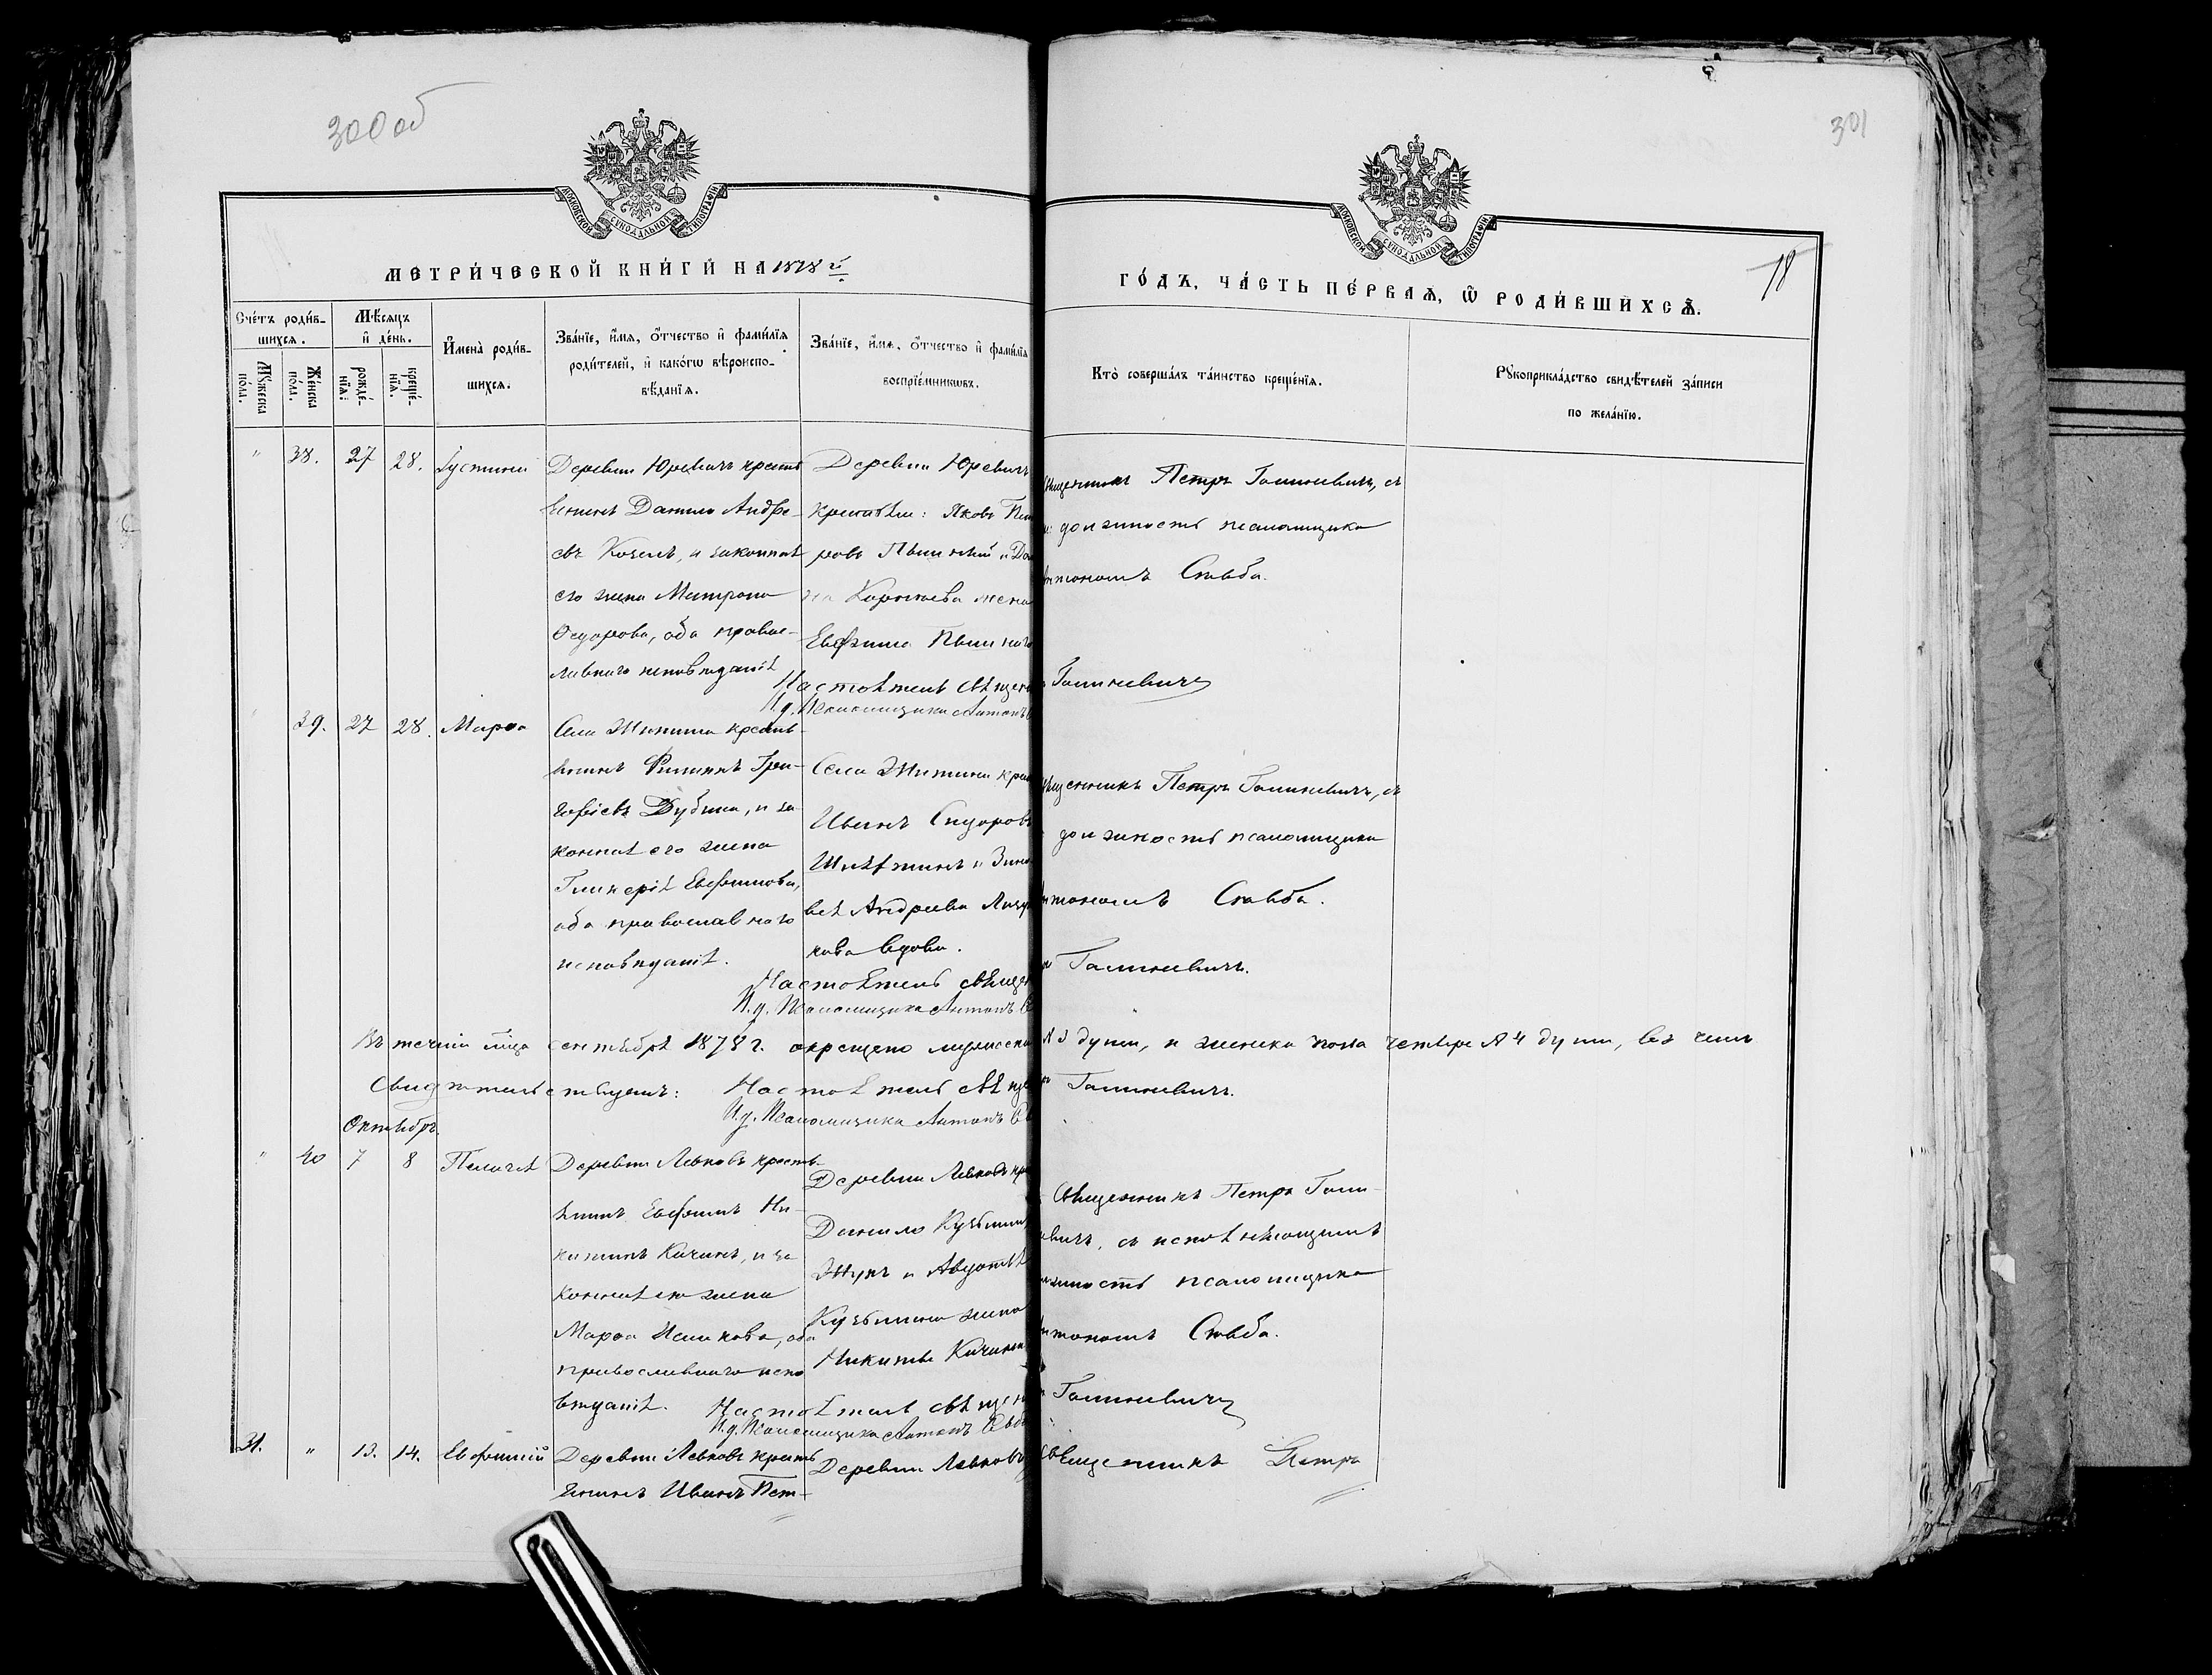 300 об
301
МОСКОВСКОЙ СѴНОДАЛЬНОЙ ТИПОГРАФІИ
МОСКОВСКОЙ СѴНОДАЛЬНОЙ ТИПОГРАФІИ
МЕТРИ́ЧЕСКОЙ КНИ́ГИ НА 1878 й
ГО́ДЪ, ЧА́СТЬ ПЕ́РВАѦ, Ѿ РОДИ́ВШИХСѦ.
18
Сче́тъ роди́в-
шихсѧ.
Мꙋ́жеска по́ла.
Же́нска по́ла.
Мѣ́сѧцъ
и҆ де́нь.
рожде́-
нїѧ.
креще́-
нїѧ.
И҆мена̀ роди́в-
шихсѧ.
Зва́нїе, и҆́мѧ, ѻ҆́тчество и҆ фами́лїѧ
роди́телей, и҆ како́гѡ вѣроиспо-
вѣ́данїѧ.
Зва́нїе, и҆́мѧ, ѻ҆́тчество и҆ фами́лїѧ
воспрїе́мникѡвъ.
Кто̀ соверша́лъ та́инство креще́нїѧ.
Рꙋкоприкла́дство свидѣ́телей за́писи
по жела́нїю.
" 38. 27 28. Іустинія
Деревни Юревичъ кресть
янинъ Данило Андре-
евъ Козелъ, и законная
его жена Матрона
Ѳедорова, оба правос-
лавнаго исповѣданія
Деревни Юревичъ
крестьяне: Яковъ Пет
ровъ и До
на Корнѣева жена
Евфима
Священникъ Петръ Галиневичъ, съ
и: должность псаломщика
Антономъ Савба.
Настоятель священ Галиневичъ
И. д. Псаломщика Антонъ С
" 39. 27 28. Марѳа
Села Житина кресть-
янинъ Филипъ Гри-
горьевъ Дубина, и за
конная его жена
Гликерія Евфимова,
оба православнаго
исповѣданія.
Села Житина крес
Иванъ Сидоровъ
и Зино
вія Андреева
кова вдова.
Священникъ Петръ Галиневичъ, съ
должность псаломщика
Антономъ Савба.
Настоятель священ Галиневичъ.
И. д. Псаломщика Антонъ С
Въ теченіи м-ца сентября 1878 г. окрещено мужеска 3 души, и женска пола четыре 4 души, въ чемъ
Свидѣтельствуемъ: Настоятель священ Галиневичъ.
И. д. Псаломщика Антонъ С
Октябрь.
" 40 7 8 Пелагія
Деревни Левковъ кресть-
янинъ Евфимъ Ни-
китинъ Качанъ, и за
конная его жена
Марѳа Исакова, оба
православнаго испо
вѣданія.
Деревни Левковъ кре
Данило Кузьминъ
Жукъ и Авдотья
Кузьмина жена
Никиты Качана
Священникъ Петръ Гали-
невичъ, съ исполняющимъ
должность псаломщика
Антономъ Савба.
Настоятель священ Галиневичъ
И. д. Псаломщика Антонъ Савба
31. " 13. 14. Евфимій
Деревни Левковъ кресть
янинъ Иванъ Пет-
Деревни Левковъ
Священникъ Петръ